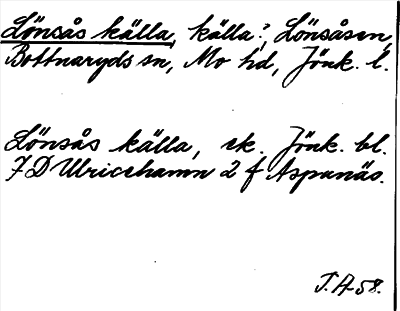 Lönsås källa, källa?, Lönsåsen,
Bottnaryds sn, Mo hd, Jönk. l.
Lönsås källa, ek. Jönk. bl.
7 D Ulricehamn 2 f Aspanäs.
J. A-58.